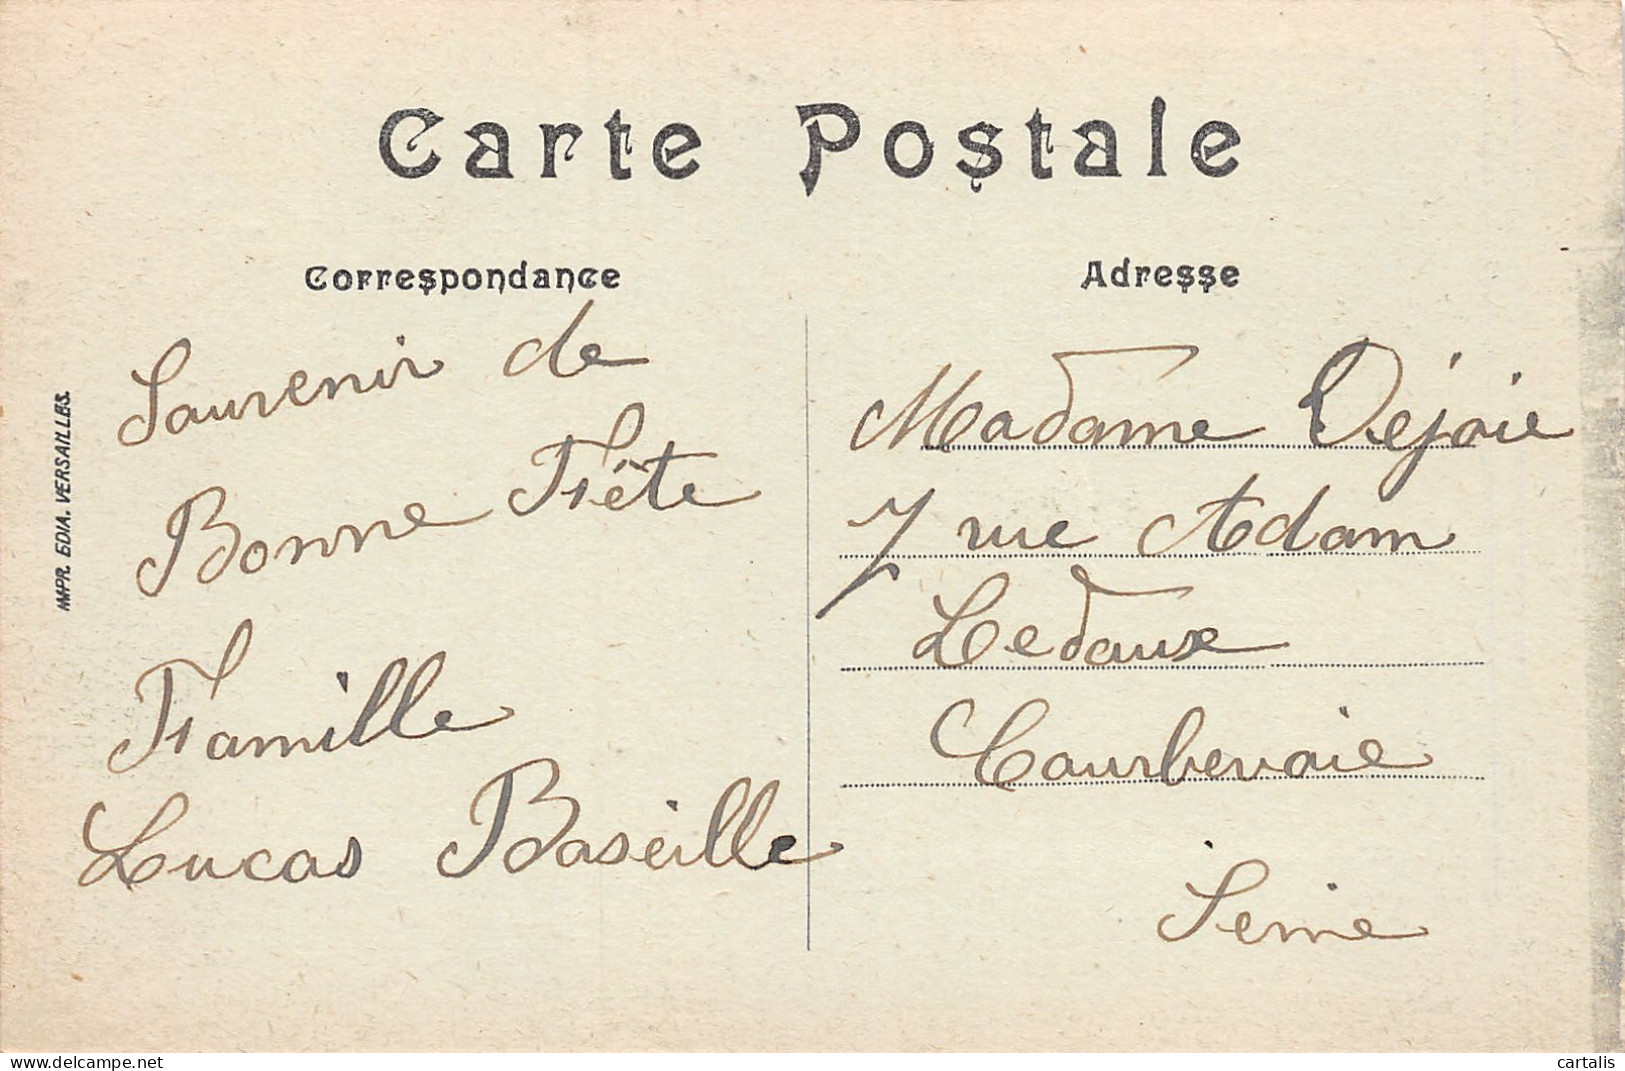 Carte Postale
Correspondance
Souvenir de
Bonne Fête
Famille
Lucas Baseille
Adresse
Madame Dejoie
7 rue Adam
Ledaux
Courbevoie
Seine
IMPR. EDIA. VERSAILLES.
delcampe.net
cartalis